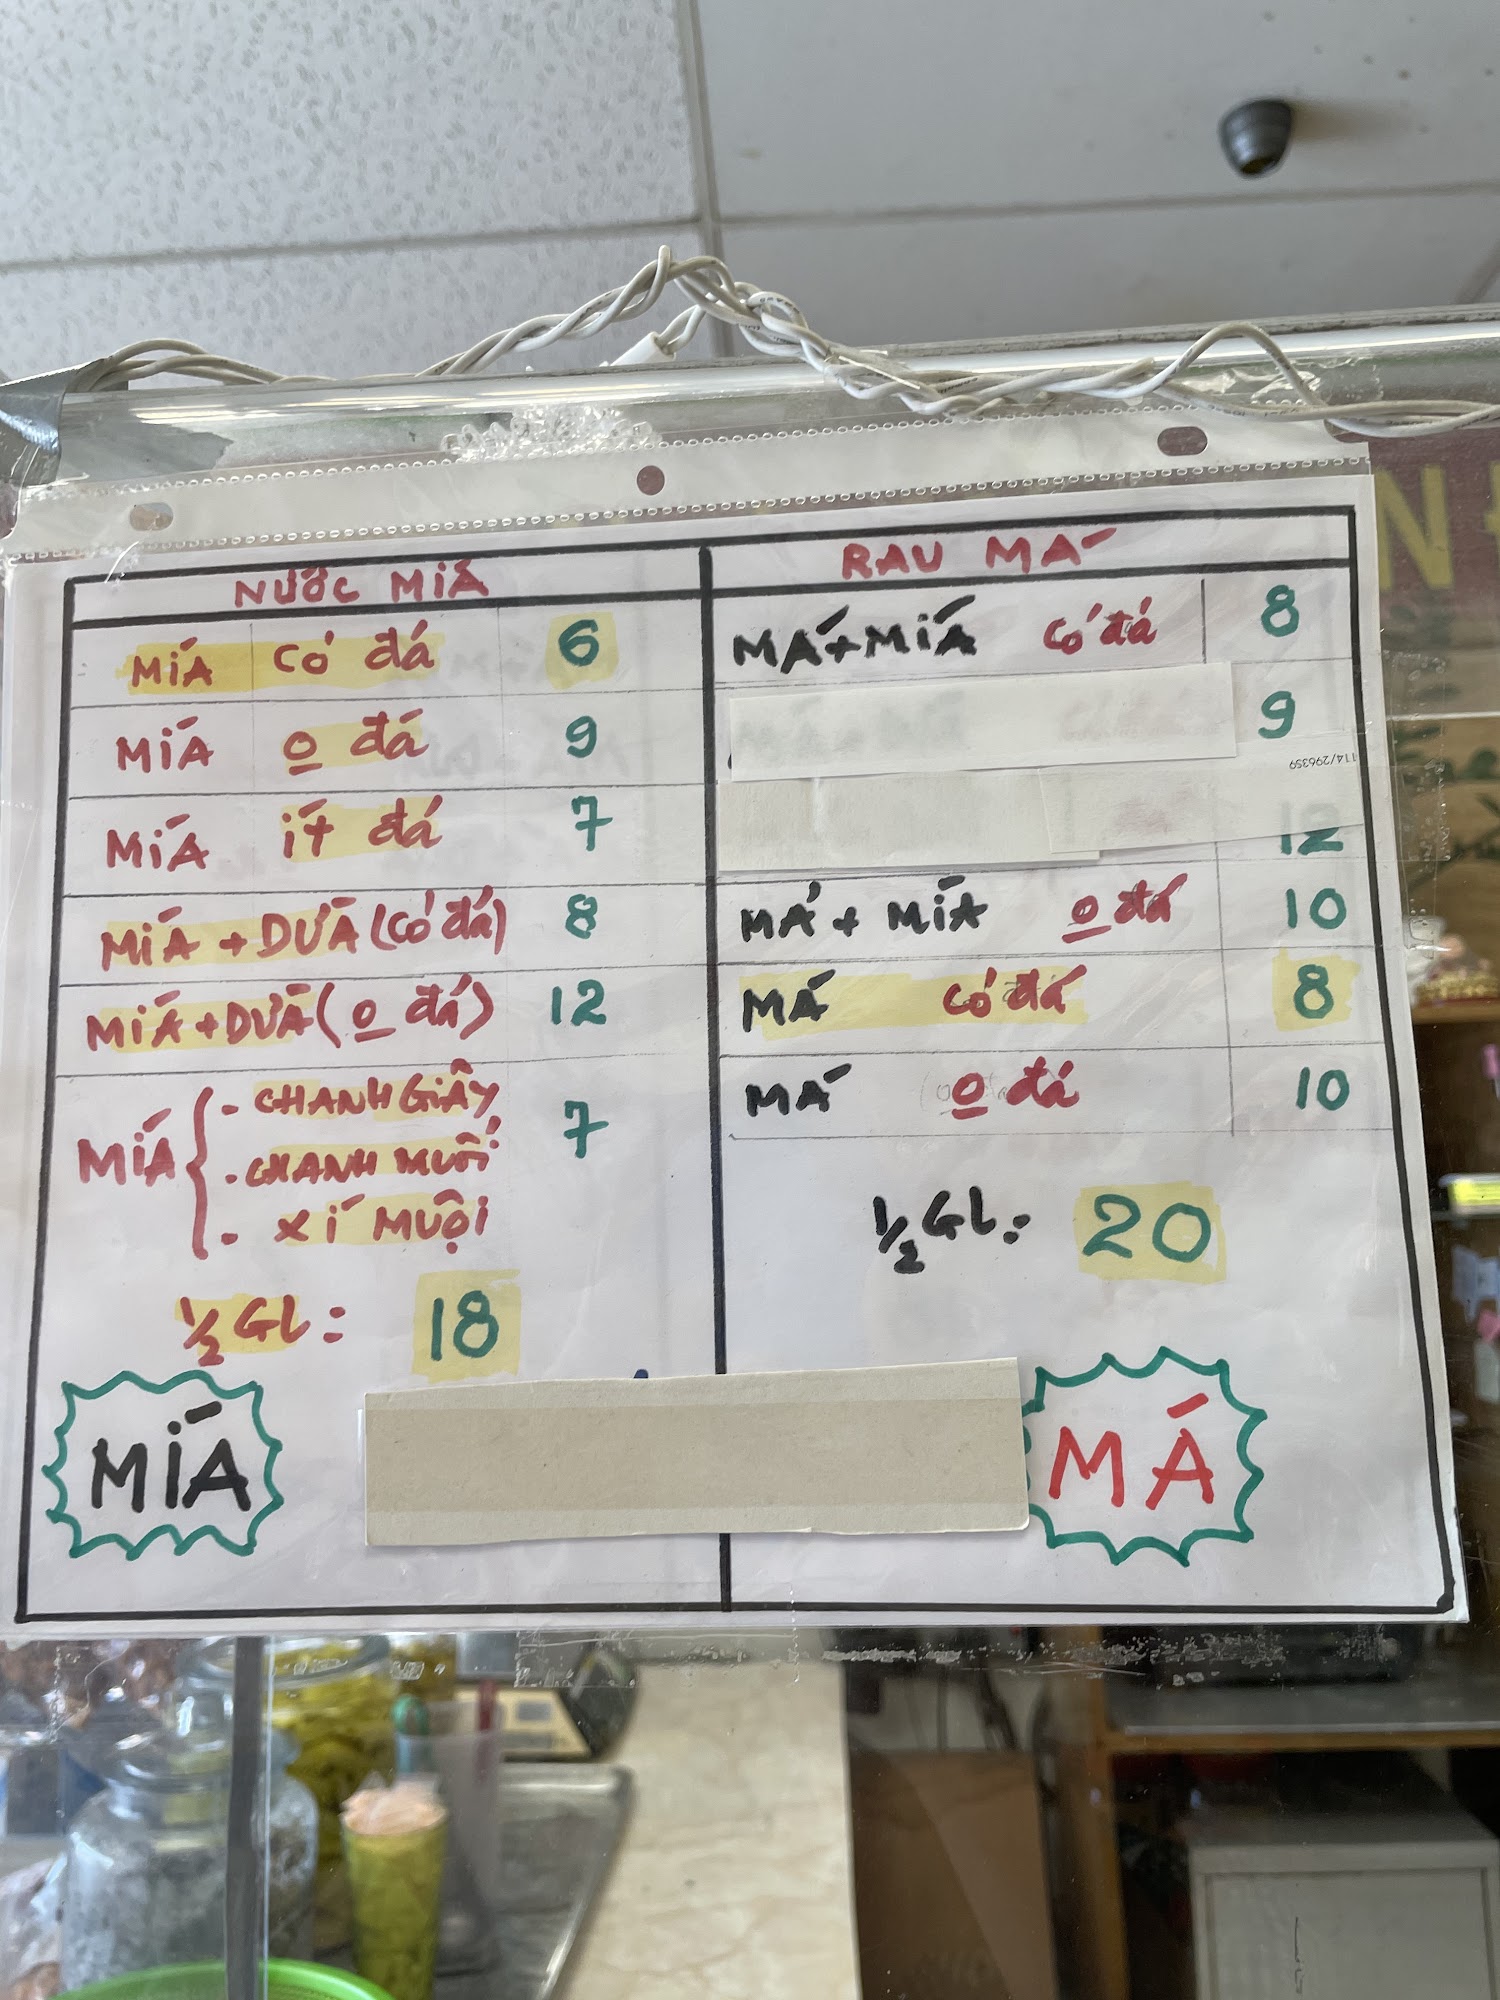 NƯỚC MÍA
MÍA có đá 6
MÍA o đá 9
MÍA ít đá 7
MÍA + DỪA (có đá) 8
MÍA + DỪA (o đá) 12
MÍA
• CHANH GIÂY
• CHANH MUỐI
• XÍ MUỘI
7
1/2 GL: 18
MÍA
RAU MÁ
MÁ + MÍA có đá 8
9
114/296359
12
MÁ + MÍA o đá 10
MÁ có đá 8
MÁ o đá 10
1/2 GL: 20
MÁ